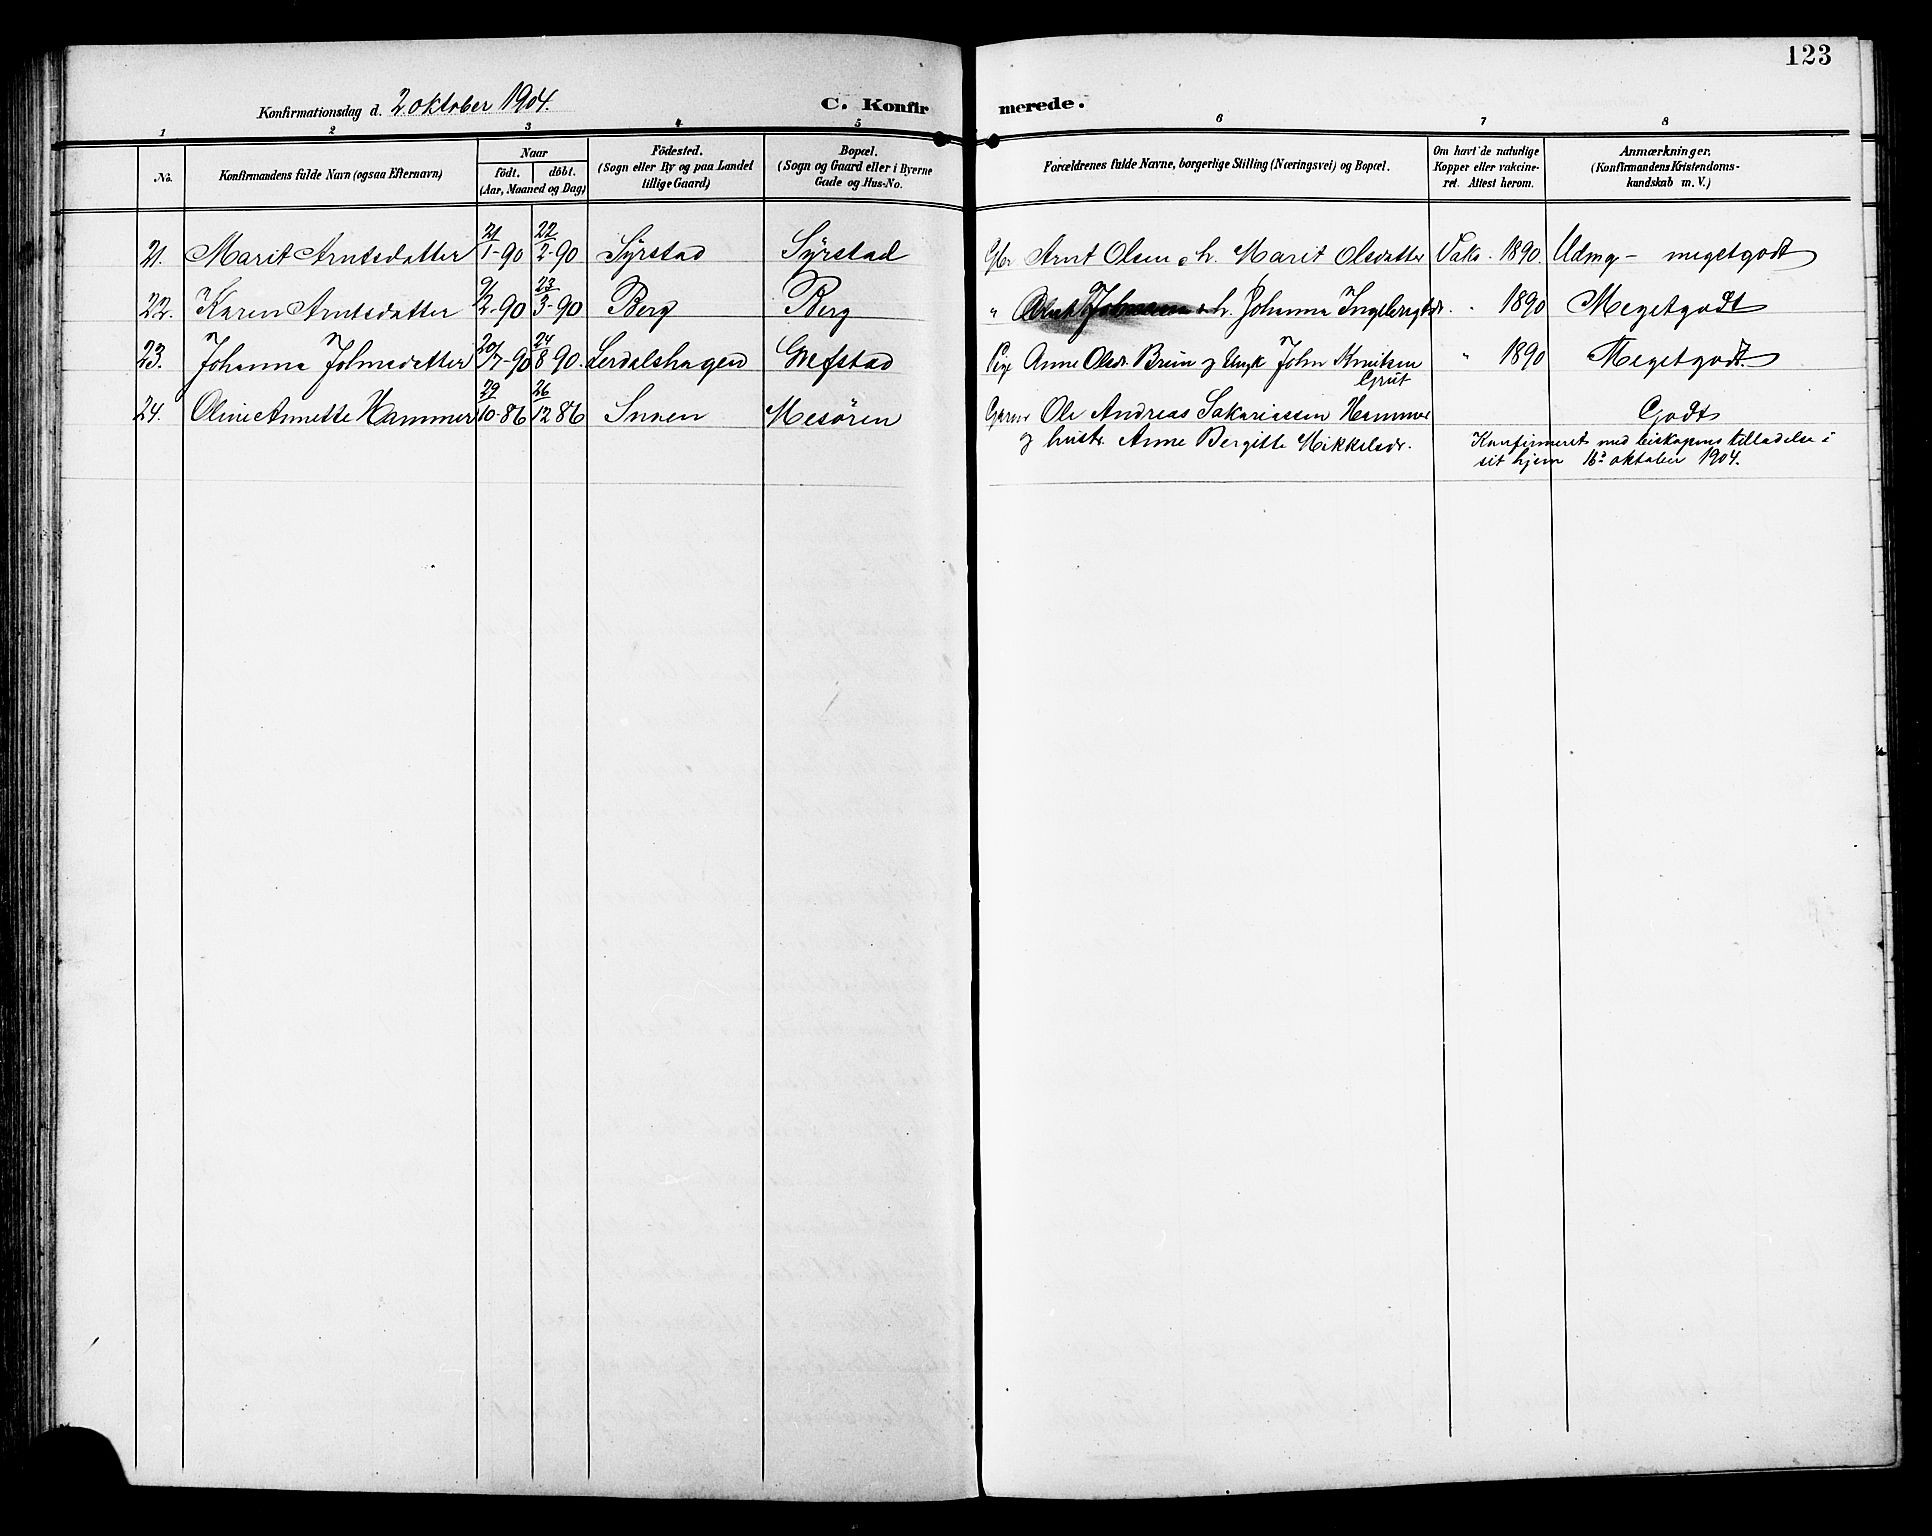 123
Konfirmationsdag d. 2 oktober 1904. C. Konfirmerede.
1 2 3 4 5 6 7 8
No. Konfirmandens fulde Navn (ogsaa Efternavn) Naar födt. döbt. (Aar, Maaned og Dag) Födested. (Sogn eller By og paa Landet tillige Gaard) Bopæl. (Sogn og Gaard eller i Byerne Gade og Hus-No. Forældrenes fulde Navne, borgerlige Stilling (Næringsvei) og Bopæl. Om havt de naturlige Kopper eller vakcineret. Attest herom. Anmærkninger. (Konfirmandens Kristendomskundskab m. V.)
21. Marit Arntsdatter 21/1-90 22/2-90 Syrstad Syrstad Gbr Arnt Olsen o h. Marit Olsdatter Vakc. 1890 Udmg - megetgodt
22. Karen Arntsdatter 9/2-90 23/3-90 Berg Berg " h. Johanna Ingebrigtsdr. " 1890 Megetgodt
23. Johanna Johnsdatter 20/7-90 24/8 90. Lerdalshagen Grefstad Pige Anne Olsdr. Brun og Ungk John Knutsen Grut " 1890 Megetgodt
24. Oline Annette Hammer 29/10-86 26/12 86 Snoen Mesören Gbrm Ole Andreas Sakariassen Hammer Godt
og hustr. Anne Bergitte Mikkelsdr. Konfirmeret med biskopens tilladelse i
sit hjem 16d oktober 1904.